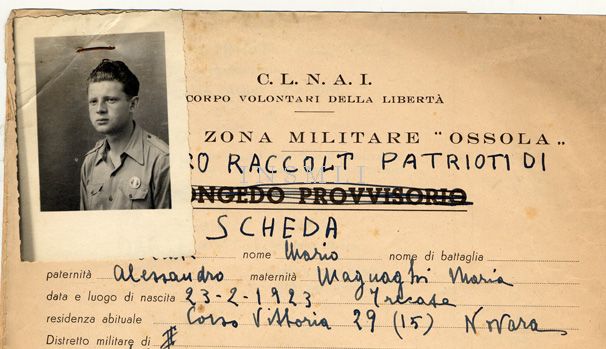 C. L. N. A. I.
CORPO VOLONTARI DELLA LIBERTÀ
ZONA MILITARE "OSSOLA"
RO RACCOLT PATRIOTI DI
INSMLI
ONGEDO PROVVISORIO
SCHEDA
nome Mario nome di battaglia
paternità Alessandro maternità Magnaghi Maria
data e luogo di nascita 23-2-1923 Trecate
residenza abituale Corso Vittoria 29 (15) Novara
Distretto militare di